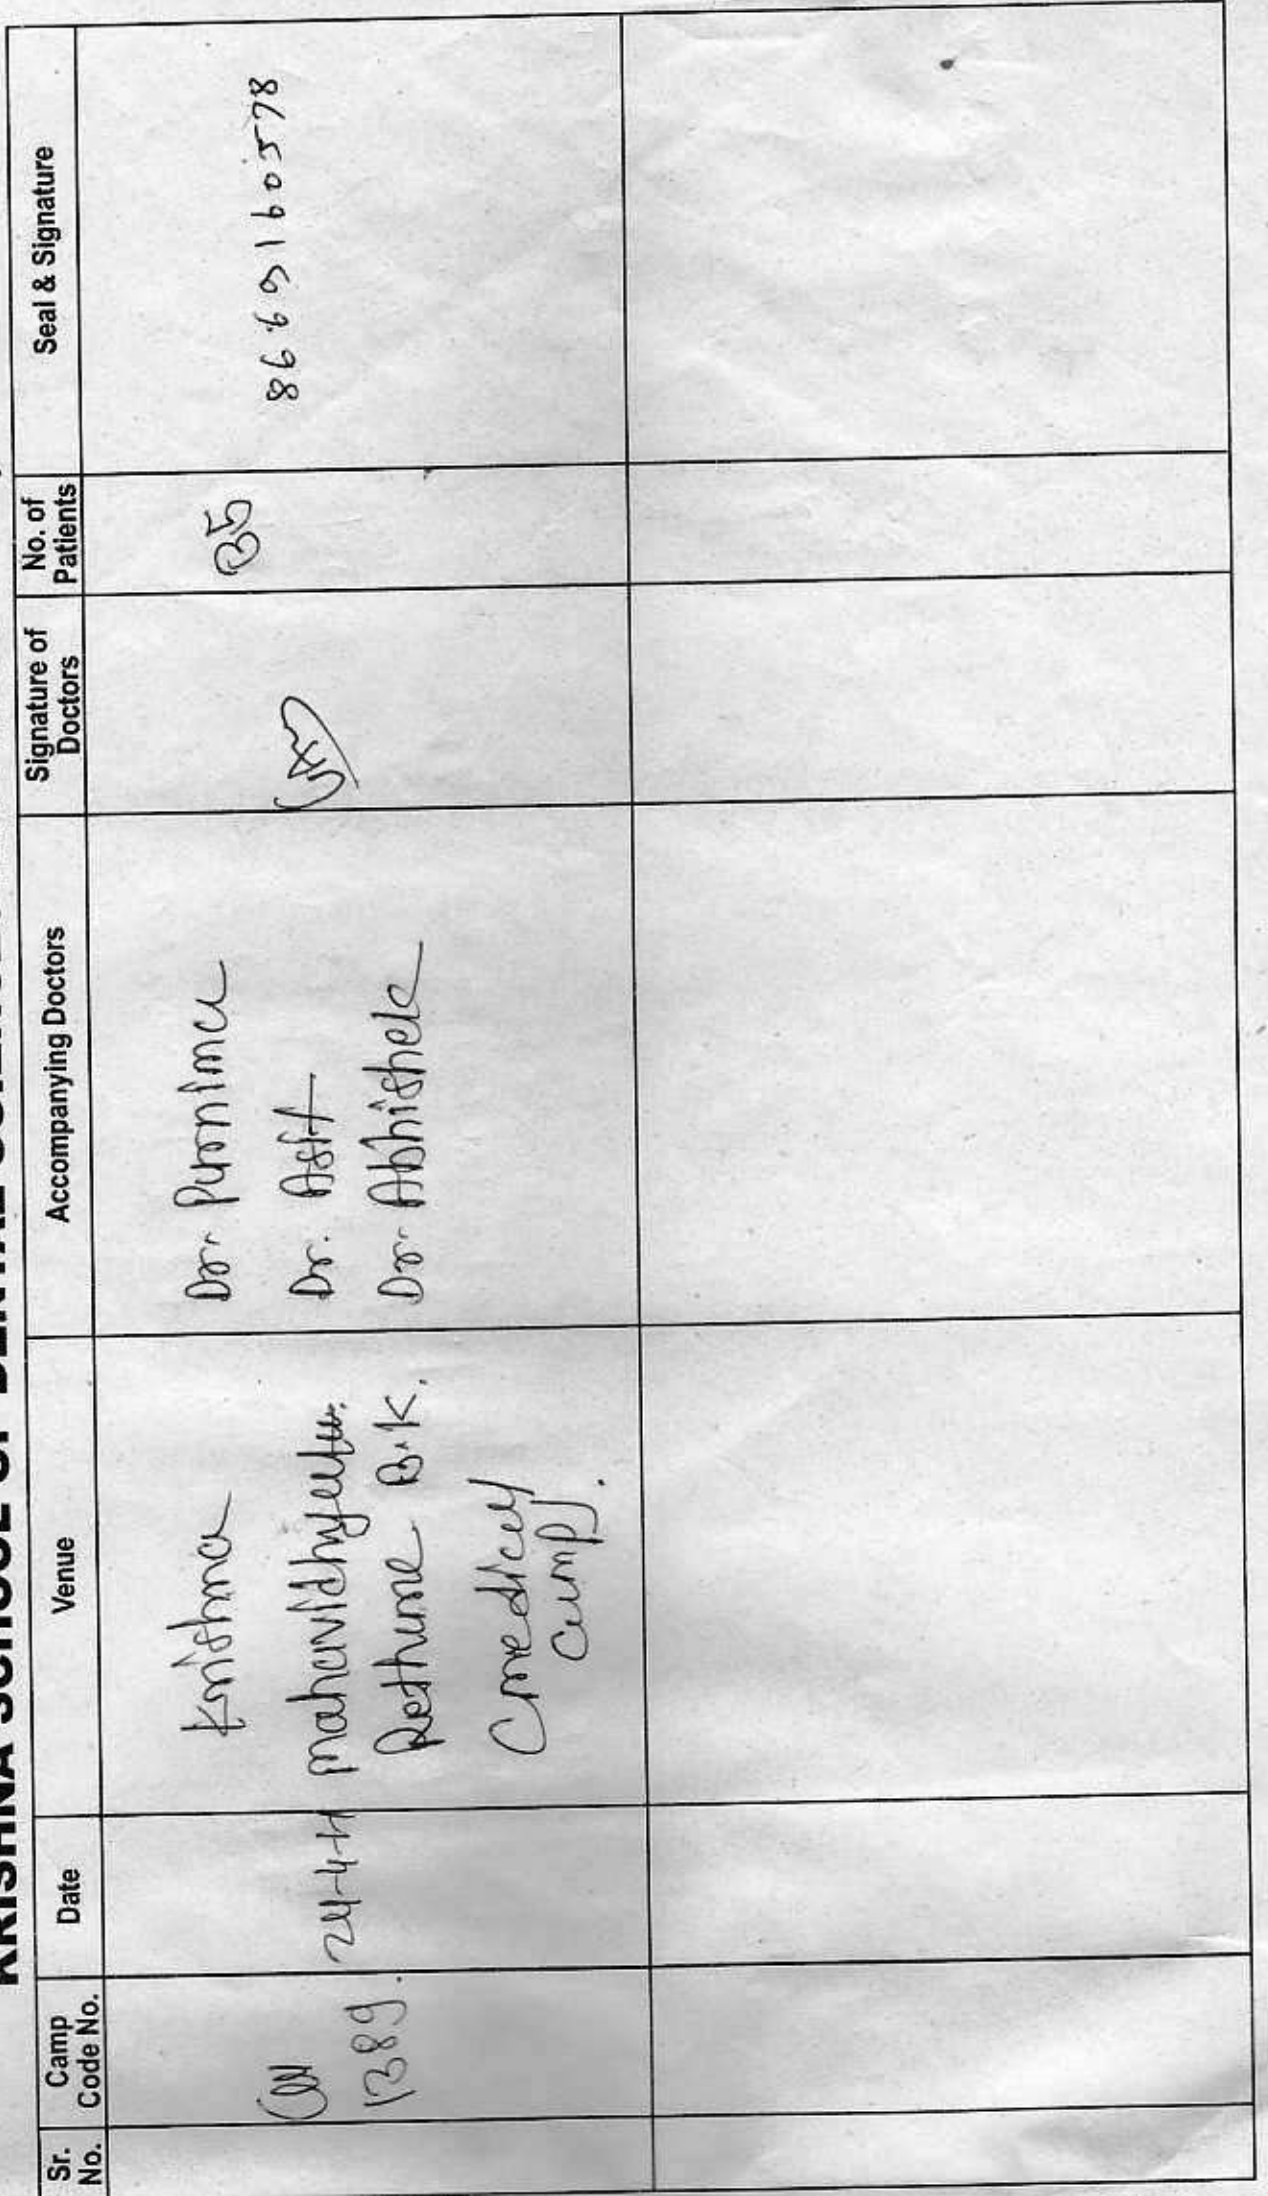 KRISHNA SCHOOL OF DENTAL SCIENCES
Sr. No.
Camp Code No.
Date
Venue
Accompanying Doctors
Signature of Doctors
No. of Patients
Seal & Signature
1389.
24-4-11
Krishna
Rethure B.K.
Cmedical
camp).
Dr. Purnima
Dr. Asit
Dr. Abhishek
35